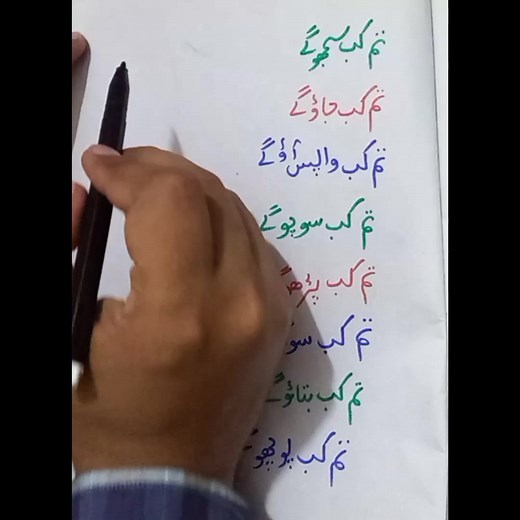 تم کب سمجھو گے
تم کب جاؤ گے
تم کب واپس آؤ گے
تم کب سوچو گے
تم کب
تم کب
تم کب بتاؤ گے
تم کب پوچھو